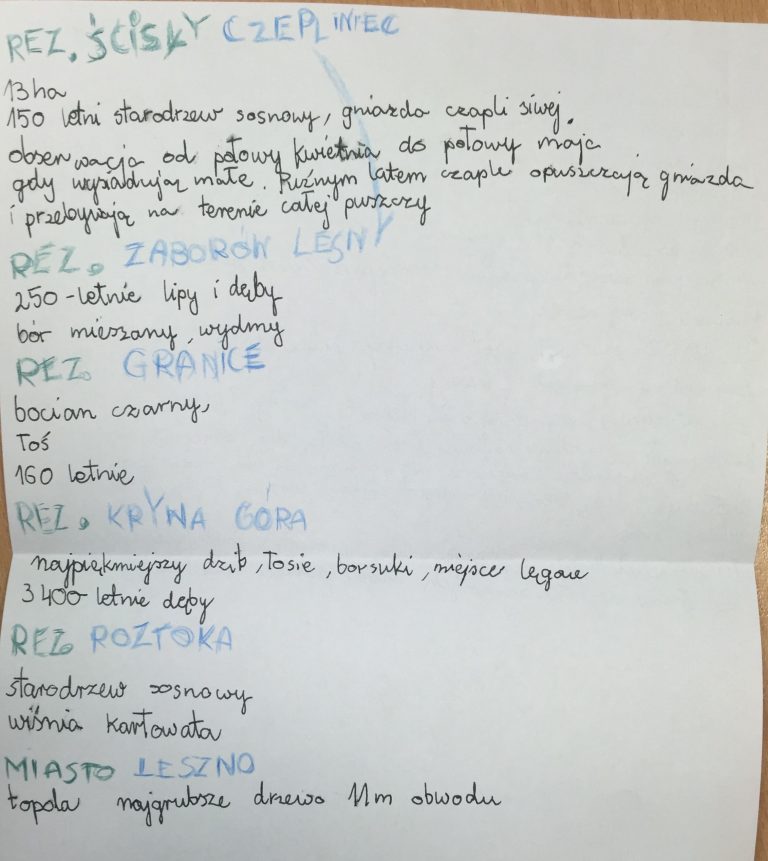 REZ. ŚCISŁY CZEPLINIEC
13 ha
150 letni starodrzew sosnowy, gniazda czapli siwej.
obserwacja od połowy kwietnia do połowy maja
gdy wysiadują małe. Puźnym latem czaple opuszczają gniazda
i przebywają na terenie całej puszczy
REZ. ZABORÓW LEŚNY
250-letnie lipy i dęby
bór mieszany, wydmy
REZ. GRANICE
bocian czarny,
Łoś
160 letnie
REZ. KRYNA GÓRA
najpiękniejszy dzib, Łosie, borsuki, miejsce lęgowe
3 400 letnie dęby
REZ. ROZTOKA
starodrzew sosnowy
wiśnia karłowata
MIASTO LESZNO
topola najgrubsze drzewo 11m obwodu